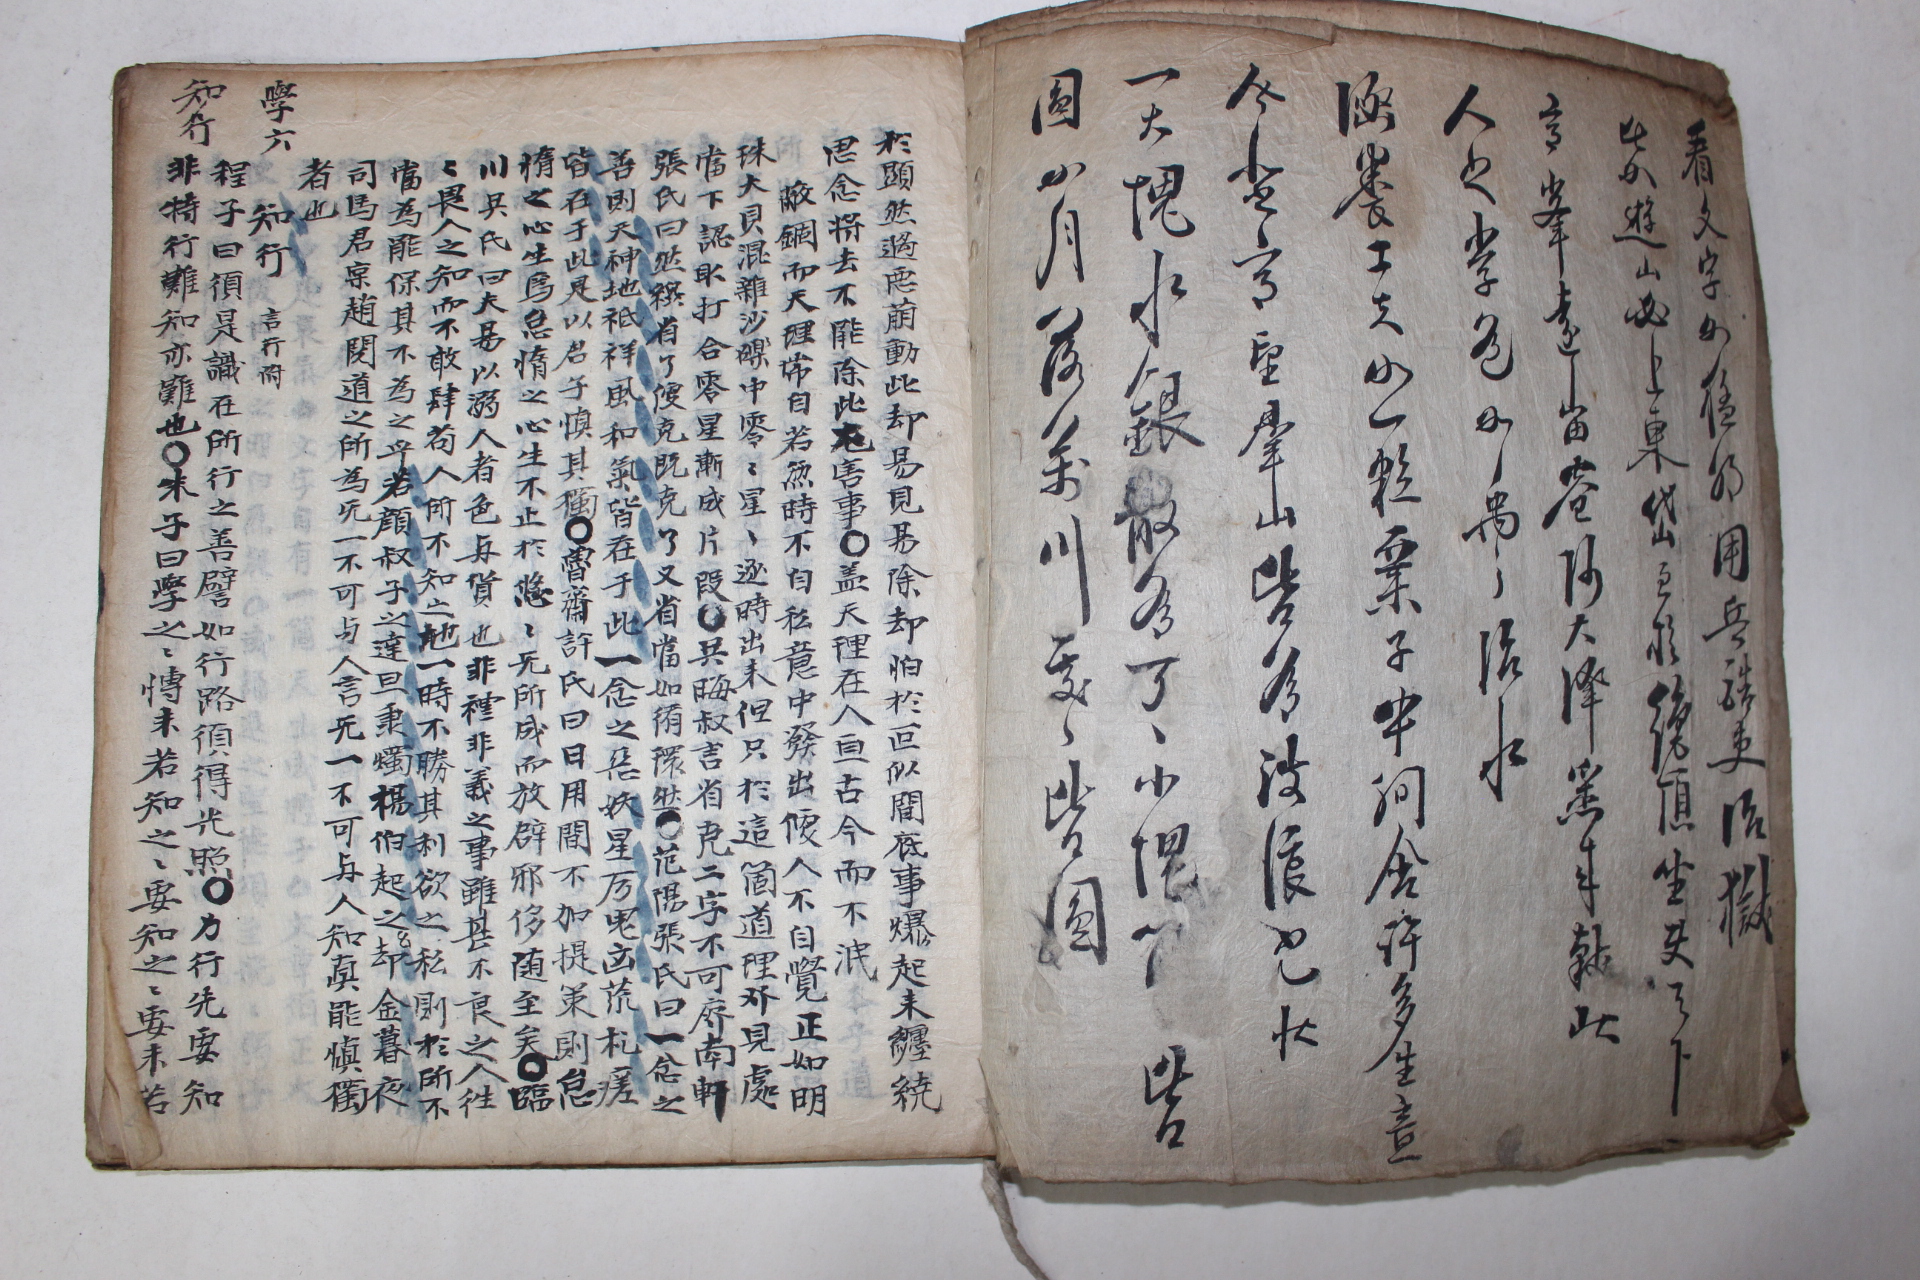 看文字如猛將用兵酷吏治獄
如遊山必上東岱至於絶頂坐見天下
高峯遠出蒼陂大澤悉來就此
人之學首如禹之治水
涵養工夫如一粒粟子中間含許多生意
今登高望羣山皆爲波浪之狀
一大塊水銀散爲了丶小塊个丶皆
圓如月落萬川處丶皆圓
於顯然過惡萠動此却易見易除却怕於一似間底事爆起来纏繞
思念將去不能除此尤害事〇盖天理在人亘古今而不泯
蔽錮而天理常自若無時不自私意中發出便人不自覺正如明
珠大貝混雜沙礫中零丶星丶逐時出来但只於這箇道理發見處
當下認取打合零星漸成片段〇吳晦叔言省克二字不可廢南軒
張氏曰然纔省了便克既克了又省當如循環然〇范陽張氏曰一念之
善則天神地祇祥風和氣皆在于此一念之惡妖星厉鬼凶荒札瘥
皆在于此是以君子慎其獨〇魯齋許氏曰日用間不加提策則怠
惰之心生焉怠惰之心生不止於悠丶无所成而放辟邪侈随至矣〇臨
川吳氏曰夫易以溺人者色与貨也非禮非義之事雖甚不良之人徃
丶畏人之知而不敢肆苟人所不知之地一時不勝其利欲之私則於所不
當為能保其不為之乎若顔叔子之達旦秉燭楊伯起之却金暮夜
司馬君宲趙閱道之所為无一不可与人言无一不可与人知真能慎獨
者也
學六　知行　言行附
知行　程子曰須是識在所行之善譬如行路須得光照〇力行先要知
非特行難知亦難也〇朱子曰學之丶慱未若知之丶要知之丶要未若